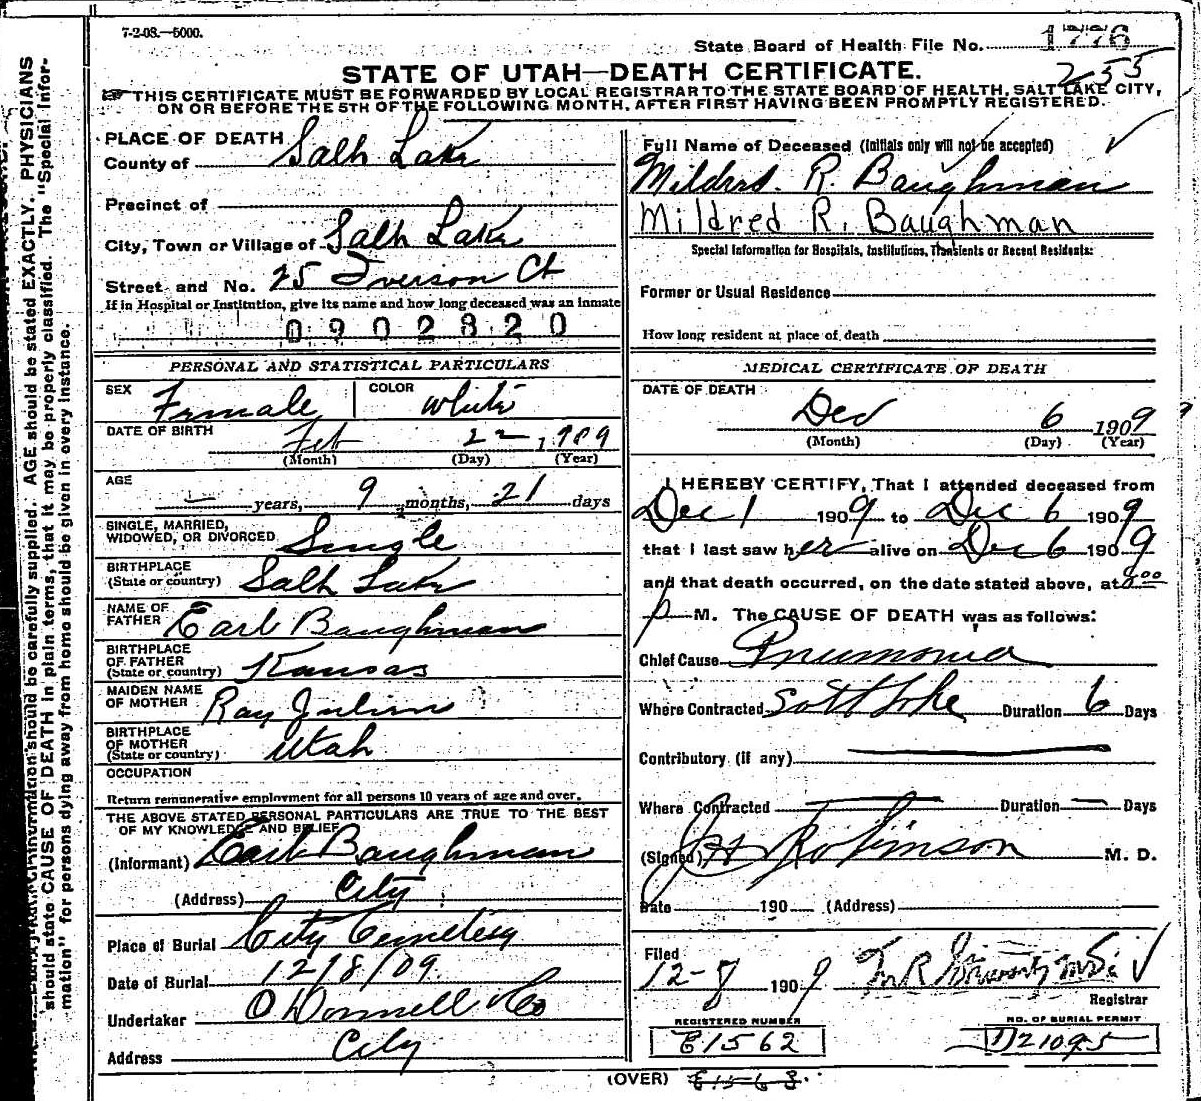 7-2-08.—5000.
State Board of Health File No. 1776
2655
STATE OF UTAH—DEATH CERTIFICATE.
THIS CERTIFICATE MUST BE FORWARDED BY LOCAL REGISTRAR TO THE STATE BOARD OF HEALTH, SALT LAKE CITY,
ON OR BEFORE THE 5TH OF THE FOLLOWING MONTH, AFTER FIRST HAVING BEEN PROMPTLY REGISTERED.
PLACE OF DEATH
County of Salt Lake
Precinct of
City, Town or Village of Salt Lake
Street and No. 25 Iverson Ct
If in Hospital or Institution, give its name and how long deceased was an inmate
0902820
PERSONAL AND STATISTICAL PARTICULARS
SEX Female COLOR White
DATE OF BIRTH Feb 22, 1909
(Month) (Day) (Year)
AGE
— years, 9 months, 21 days
SINGLE, MARRIED,
WIDOWED, OR DIVORCED Single
BIRTHPLACE
(State or country) Salt Lake
NAME OF
FATHER Earl Baughman
BIRTHPLACE
OF FATHER
(State or country) Kansas
MAIDEN NAME
OF MOTHER Ray Julien
BIRTHPLACE
OF MOTHER
(State or country) Utah
OCCUPATION
Return remunerative employment for all persons 10 years of age and over.
THE ABOVE STATED PERSONAL PARTICULARS ARE TRUE TO THE BEST
OF MY KNOWLEDGE AND BELIEF
(Informant) Earl Baughman
(Address) City
Place of Burial City Cemetery
Date of Burial 12/8/09
Undertaker O'Donnell & Co
Address City
Full Name of Deceased (Initials only will not be accepted)
Mildred. R. Baughman
Mildred R. Baughman
Special Information for Hospitals, Institutions, Transients or Recent Residents:
Former or Usual Residence
How long resident at place of death
MEDICAL CERTIFICATE OF DEATH
DATE OF DEATH
Dec 6 1909
(Month) (Day) (Year)
I HEREBY CERTIFY, That I attended deceased from
Dec 1 1909 to Dec 6 1909
that I last saw her alive on Dec 6 1909
and that death occurred, on the date stated above, at 8:00
p M. The CAUSE OF DEATH was as follows:
Chief Cause Pneumonia
Where Contracted Salt Lake Duration 6 Days
Contributory (if any)
Where Contracted — Duration — Days
(Signed) J H Robinson M. D.
Date 190 (Address)
Filed
12-8 1909
Registrar
REGISTERED NUMBER
E1562
NO. OF BURIAL PERMIT
D21095
(OVER) E1563
should state CAUSE OF DEATH in plain terms, that it may be properly classified. The "Special Infor-
mation" for persons dying away from home should be given in every instance.
should be carefully supplied. AGE should be stated EXACTLY. PHYSICIANS